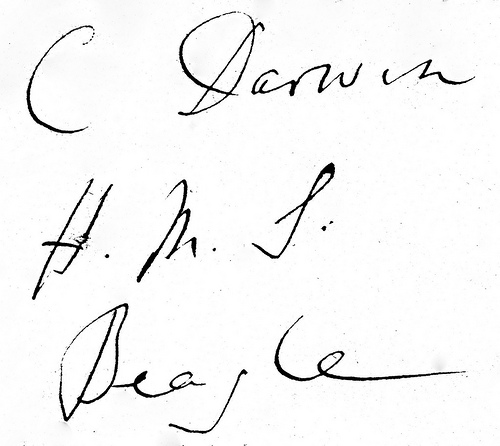 C Darwin
H. M. S.
Beagle